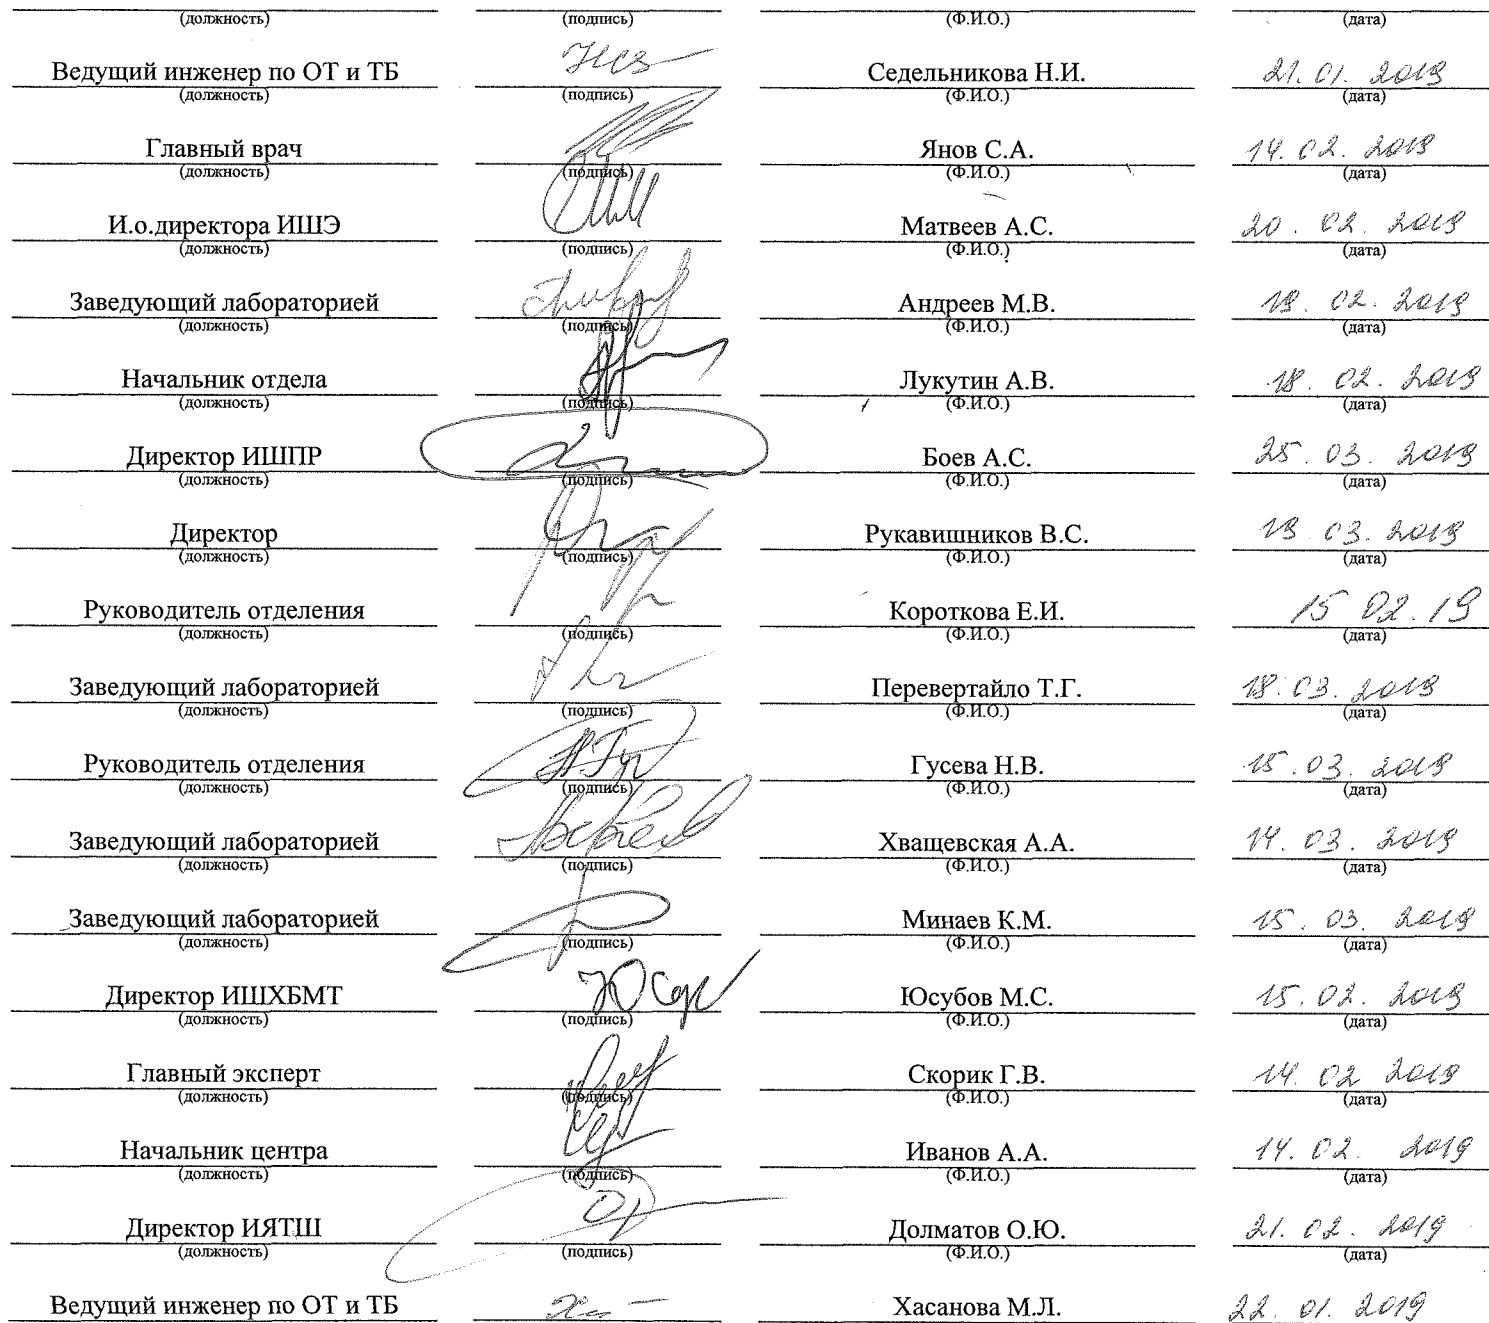 (должность) (подпись) (Ф.И.О.) (дата)
Ведущий инженер по ОТ и ТБ Седельникова Н.И. 21.01.2019
(должность) (подпись) (Ф.И.О.) (дата)
Главный врач Янов С.А. 14.02.2019
(должность) (подпись) (Ф.И.О.) (дата)
И.о.директора ИШЭ Матвеев А.С. 20.02.2019
(должность) (подпись) (Ф.И.О.) (дата)
Заведующий лабораторией Андреев М.В. 19.02.2019
(должность) (подпись) (Ф.И.О.) (дата)
Начальник отдела Лукутин А.В. 18.02.2019
(должность) (подпись) (Ф.И.О.) (дата)
Директор ИШПР Боев А.С. 25.03.2019
(должность) (подпись) (Ф.И.О.) (дата)
Директор Рукавишников В.С. 19.03.2019
(должность) (подпись) (Ф.И.О.) (дата)
Руководитель отделения Короткова Е.И. 15 02.19
(должность) (подпись) (Ф.И.О.) (дата)
Заведующий лабораторией Перевертайло Т.Г. 18.03.2019
(должность) (подпись) (Ф.И.О.) (дата)
Руководитель отделения Гусева Н.В. 15.03.2019
(должность) (подпись) (Ф.И.О.) (дата)
Заведующий лабораторией Хващевская А.А. 14.03.2019
(должность) (подпись) (Ф.И.О.) (дата)
Заведующий лабораторией Минаев К.М. 15.03.2019
(должность) (подпись) (Ф.И.О.) (дата)
Директор ИШХБМТ Юсубов М.С. 15.02.2019
(должность) (подпись) (Ф.И.О.) (дата)
Главный эксперт Скорик Г.В. 14.02 2019
(должность) (подпись) (Ф.И.О.) (дата)
Начальник центра Иванов А.А. 14.02.2019
(должность) (подпись) (Ф.И.О.) (дата)
Директор ИЯТШ Долматов О.Ю. 21.02.2019
(должность) (подпись) (Ф.И.О.) (дата)
Ведущий инженер по ОТ и ТБ Хасанова М.Л. 22.01.2019